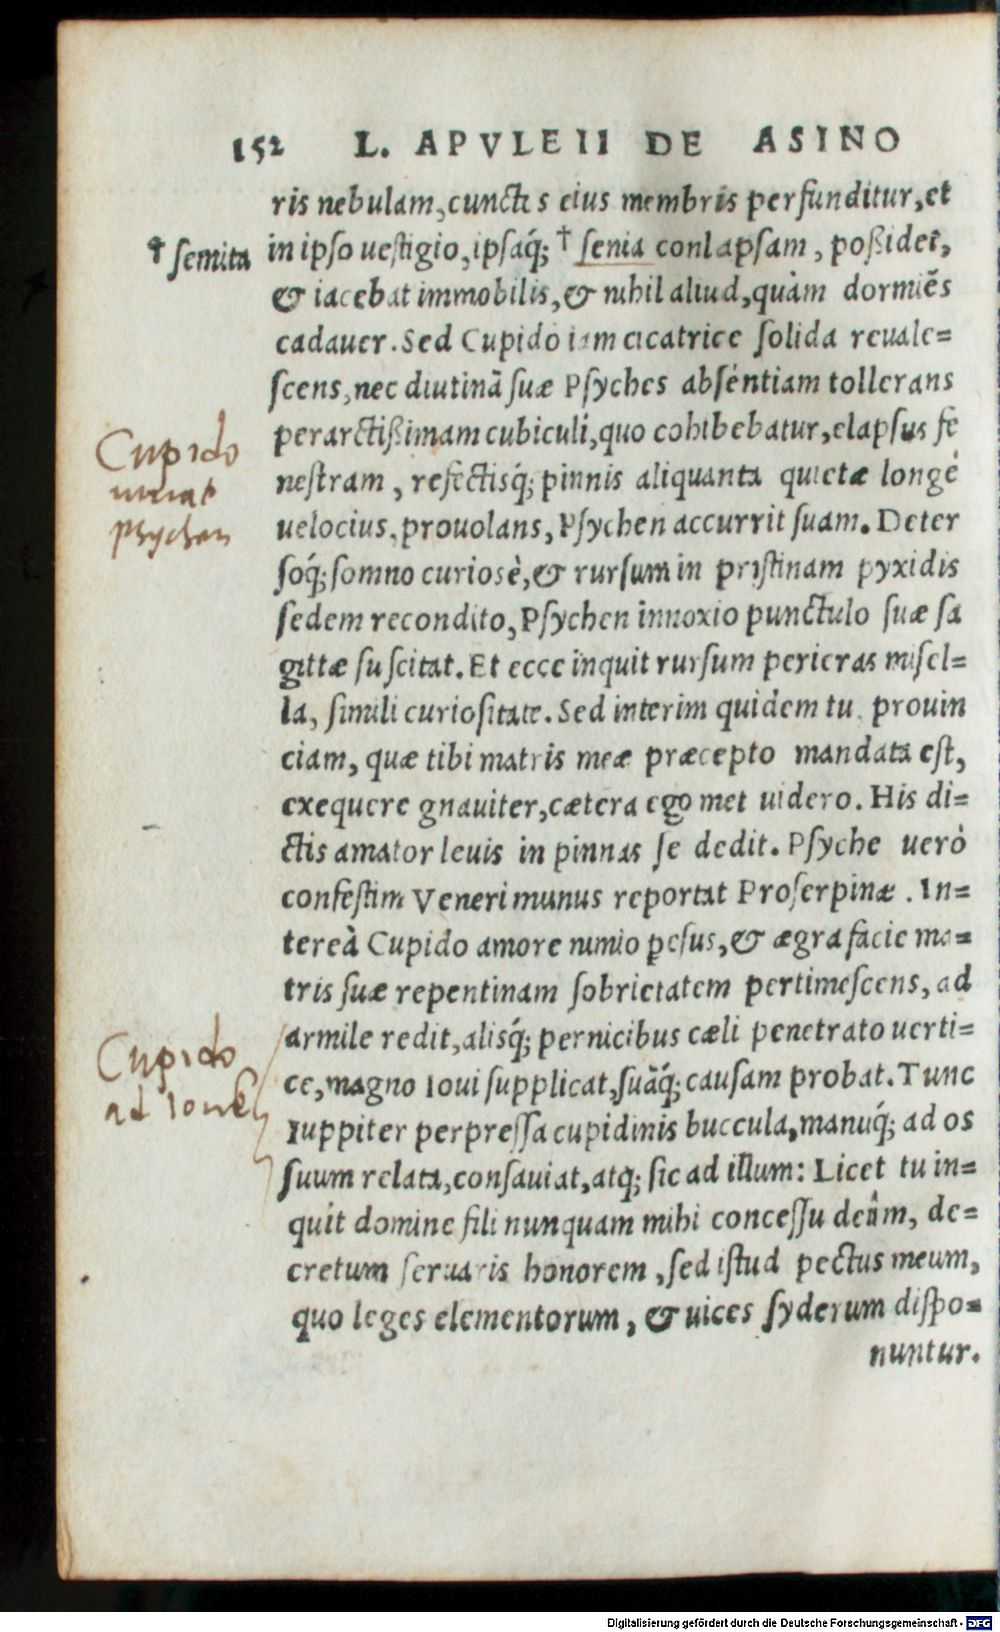 152 L. APVLEII DE ASINO
ris nebulam, cunctis eius membris perfunditur, et
† semita
in ipso uestigio, ipsaq́; † senia conlapsam, poßidet,
& iacebat immobilis, & nihil aliud, quàm dormiẽs
cadauer. Sed Cupido iam cicatrice solida reuale=
scens, nec diutinã suæ Psyches abséntiam tollerans
perarctißimam cubiculi, quo cohibebatur, elapsus fe
nestram, refectisq́; pinnis aliquanta quietæ longè
uelocius, prouolans, Psychen accurrit suam. Deter
soq́; somno curiosè, & rursum in pristinam pyxidis
sedem recondito, Psychen innoxio punctulo suæ sa
gittæ suscitat. Et ecce inquit rursum perieras misel=
la, simili curiositate. Sed interim quidem tu prouin
ciam, quæ tibi matris meæ præcepto mandata est,
exequere gnauiter, cætera egomet uidero. His di=
ctis amator leuis in pinnas se dedit. Psyche uerò
confestim Veneri munus reportat Proserpinæ. In=
tereà Cupido amore nimio ꝑesus, & ægra facie ma=
tris suæ repentinam sobrietatem pertimescens, ad
armile redit, alisq́; pernicibus cæli penetrato uerti=
ce, magno Ioui supplicat, suãq́; causam probat. Tunc
Iuppiter perpressa cupidinis buccula, manuq́; ad os
suum relata, consauiat, atq; sic ad illum: Licet tu in=
quit domine fili nunquam mihi concessu deûm, de=
cretum seruaris honorem, sed istud pectus meum,
quo leges elementorum, & uices syderum dispo=
nuntur.
Cupido
psychen
Cupido
ad Iouem
Digitalisierung gefördert durch die Deutsche Forschungsgemeinschaft - DFG